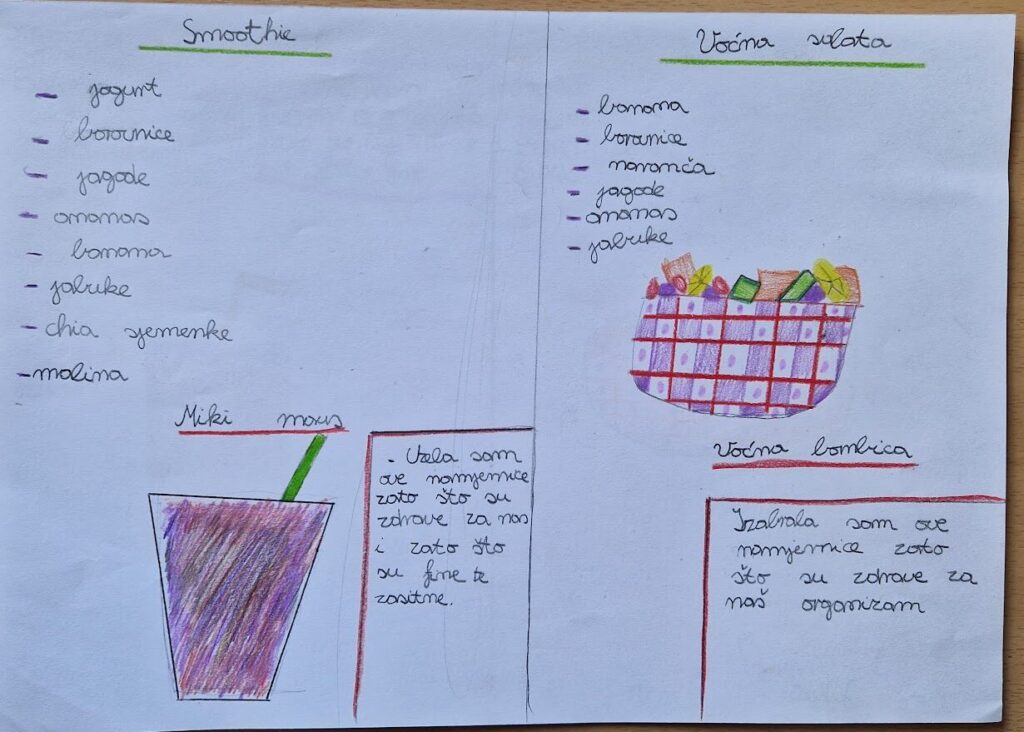 Smoothie
- jogurt
- borovnice
- jagode
- ananas
- banana
- jabuke
- chia sjemenke
- malina
Miki mous
- Uzela sam
ove namjernice
zato što su
zdrave za nas
i zato što
su fine te
zasitne.
Voćna salata
- banana
- borovnice
- naranča
- jagode
- ananas
- jabuke
Voćna bombica
Izabrala sam ove
namjernice zato
što su zdrave za
naš organizam